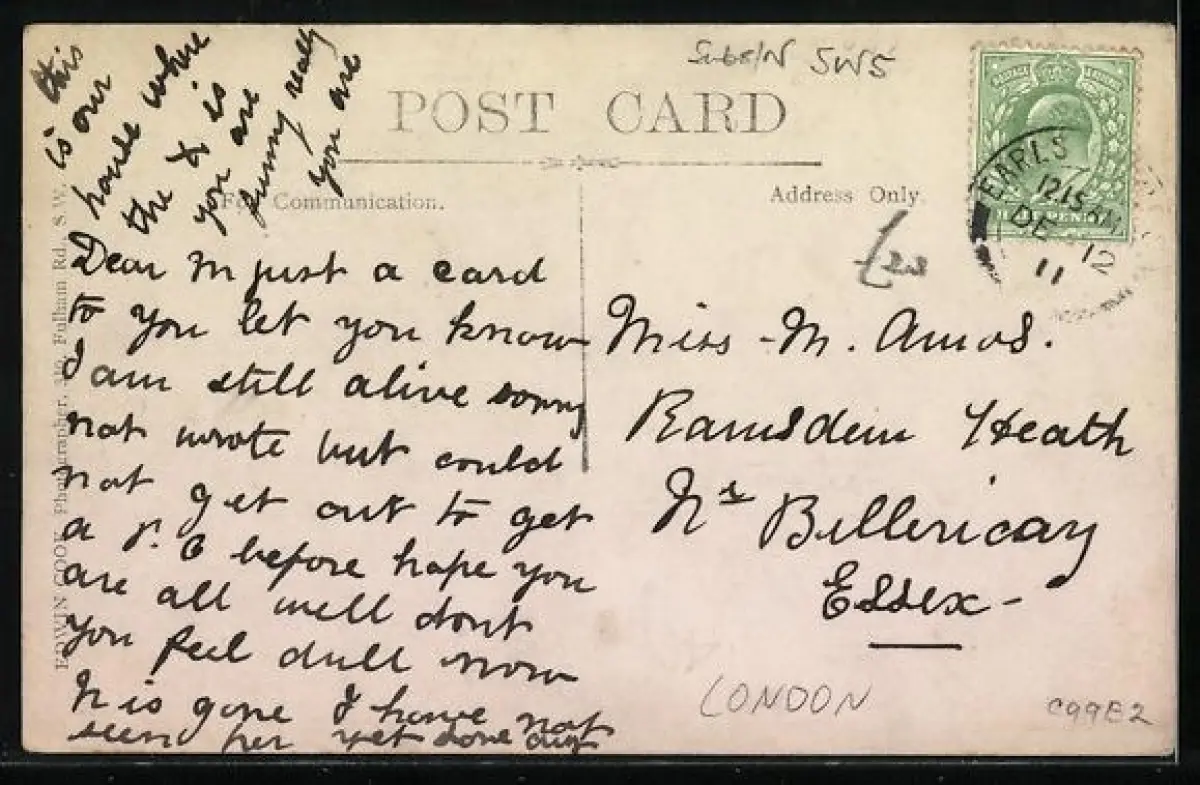 this
is our
house where
the X is
you are
funny really
you are
SW5
POST CARD
For Communication.
Address Only
EDWIN COOK Photographer, Fulham Rd., S.W.
EARLS
12.15 AM
DE 12
11
HALFPENNY
Dear M just a card
to you let you know
I am still alive sorry
not wrote but could
not get out to get
a P.C before hope you
are all well dont
you feel dull now
N is gone I have not
seen her yet done
Miss M. Amos.
Ramsden Heath
Nr Billericay
Essex
LONDON
C99E2